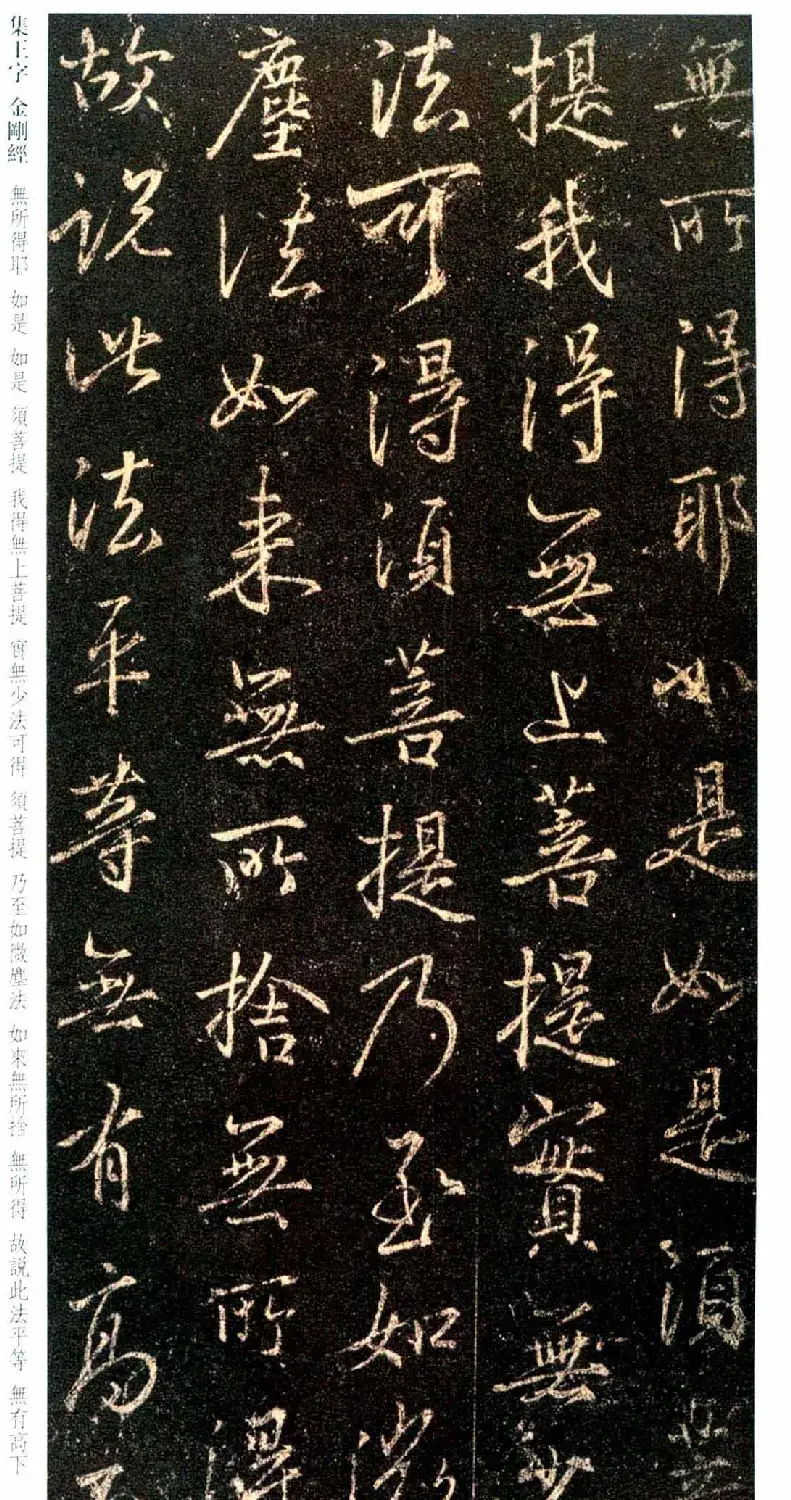 無所得耶如是如是須菩
提我得無上菩提實無少
法可得須菩提乃至如微
塵法如来無所捨無所得
故説此法平等無有高下
集王字 金剛經 無所得耶 如是 如是 須菩提 我得無上菩提 實無少法可得 須菩提 乃至如微塵法 如來無所捨 無所得 故説此法平等 無有高下